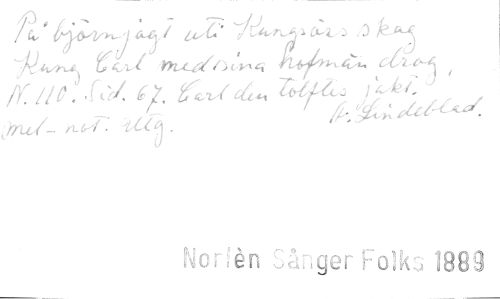 På björnjagt uti Kungsörs skog
Kung Carl med sina hofmän drog,
N. 110. Sid. 67. Carl den tolftes jakt.
A. Lindeblad.
mel-not. Utg.
Norlèn Sånger Folks 1889